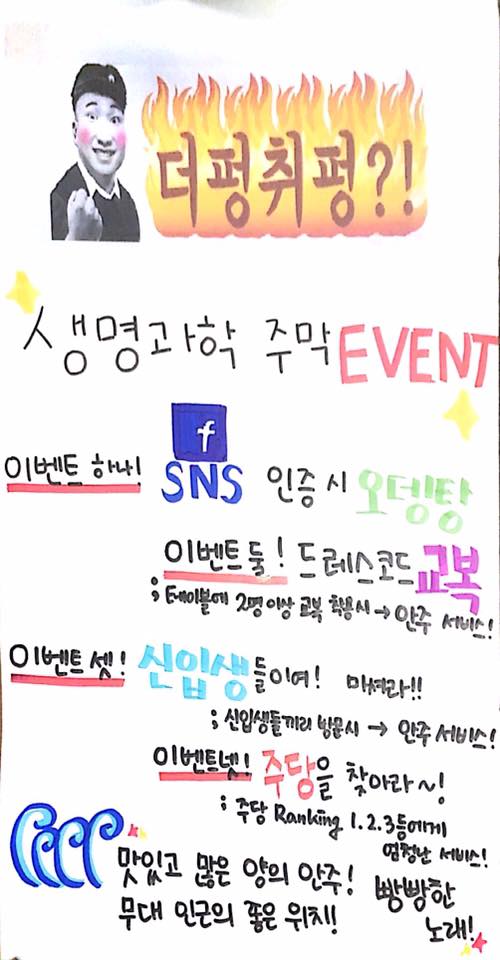 더펑취펑?!
생명과학 주막 EVENT
f
이벤트 하나! SNS 인증시 오뎅탕
이벤트 둘! 드레스코드 교복
; 테이블에 2명이상 교복 착용시 → 안주 서비스!
이벤트 셋! 신입생들이여! 마셔라!!
; 신입생들끼리 방문시 → 안주 서비스!
이벤트 넷! 주당을 찾아라~!
; 주당 Ranking 1.2.3등에게
엄청난 서비스!
맛있고 많은 양의 안주! 빵빵한
무대 인근의 좋은 위치! 노래!